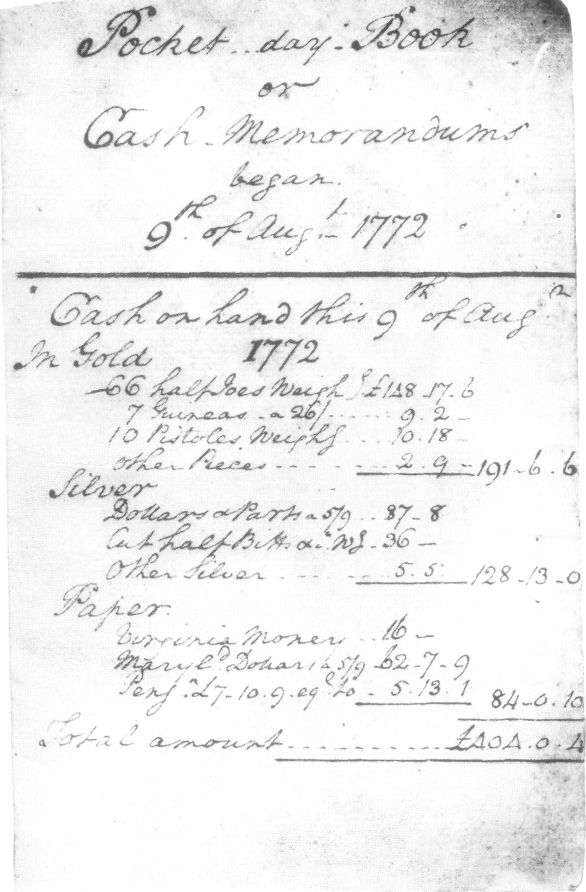 Pocket day-Book
or
Cash Memorandums
began
9th of Augt 1772
Cash on hand this 9th of Aug
In Gold 1772
66 half Joes Weigh £148.17.6
7 Guineas a 26/ 9.2-
10 Pistoles Weighg 10.18-
other Pieces 2.9- 191.6.6
Silver
Dollars & Parts a 5/9 87-8
Cut half Bitts &c. 36-
Other Silver 5.5 128-13-0
Paper
Virginia Money 16-
Maryld Dollars a 5/9 62-7-9
£7-10.9 eql to 5.13.1 84-0.10
Total amount £404.0.4